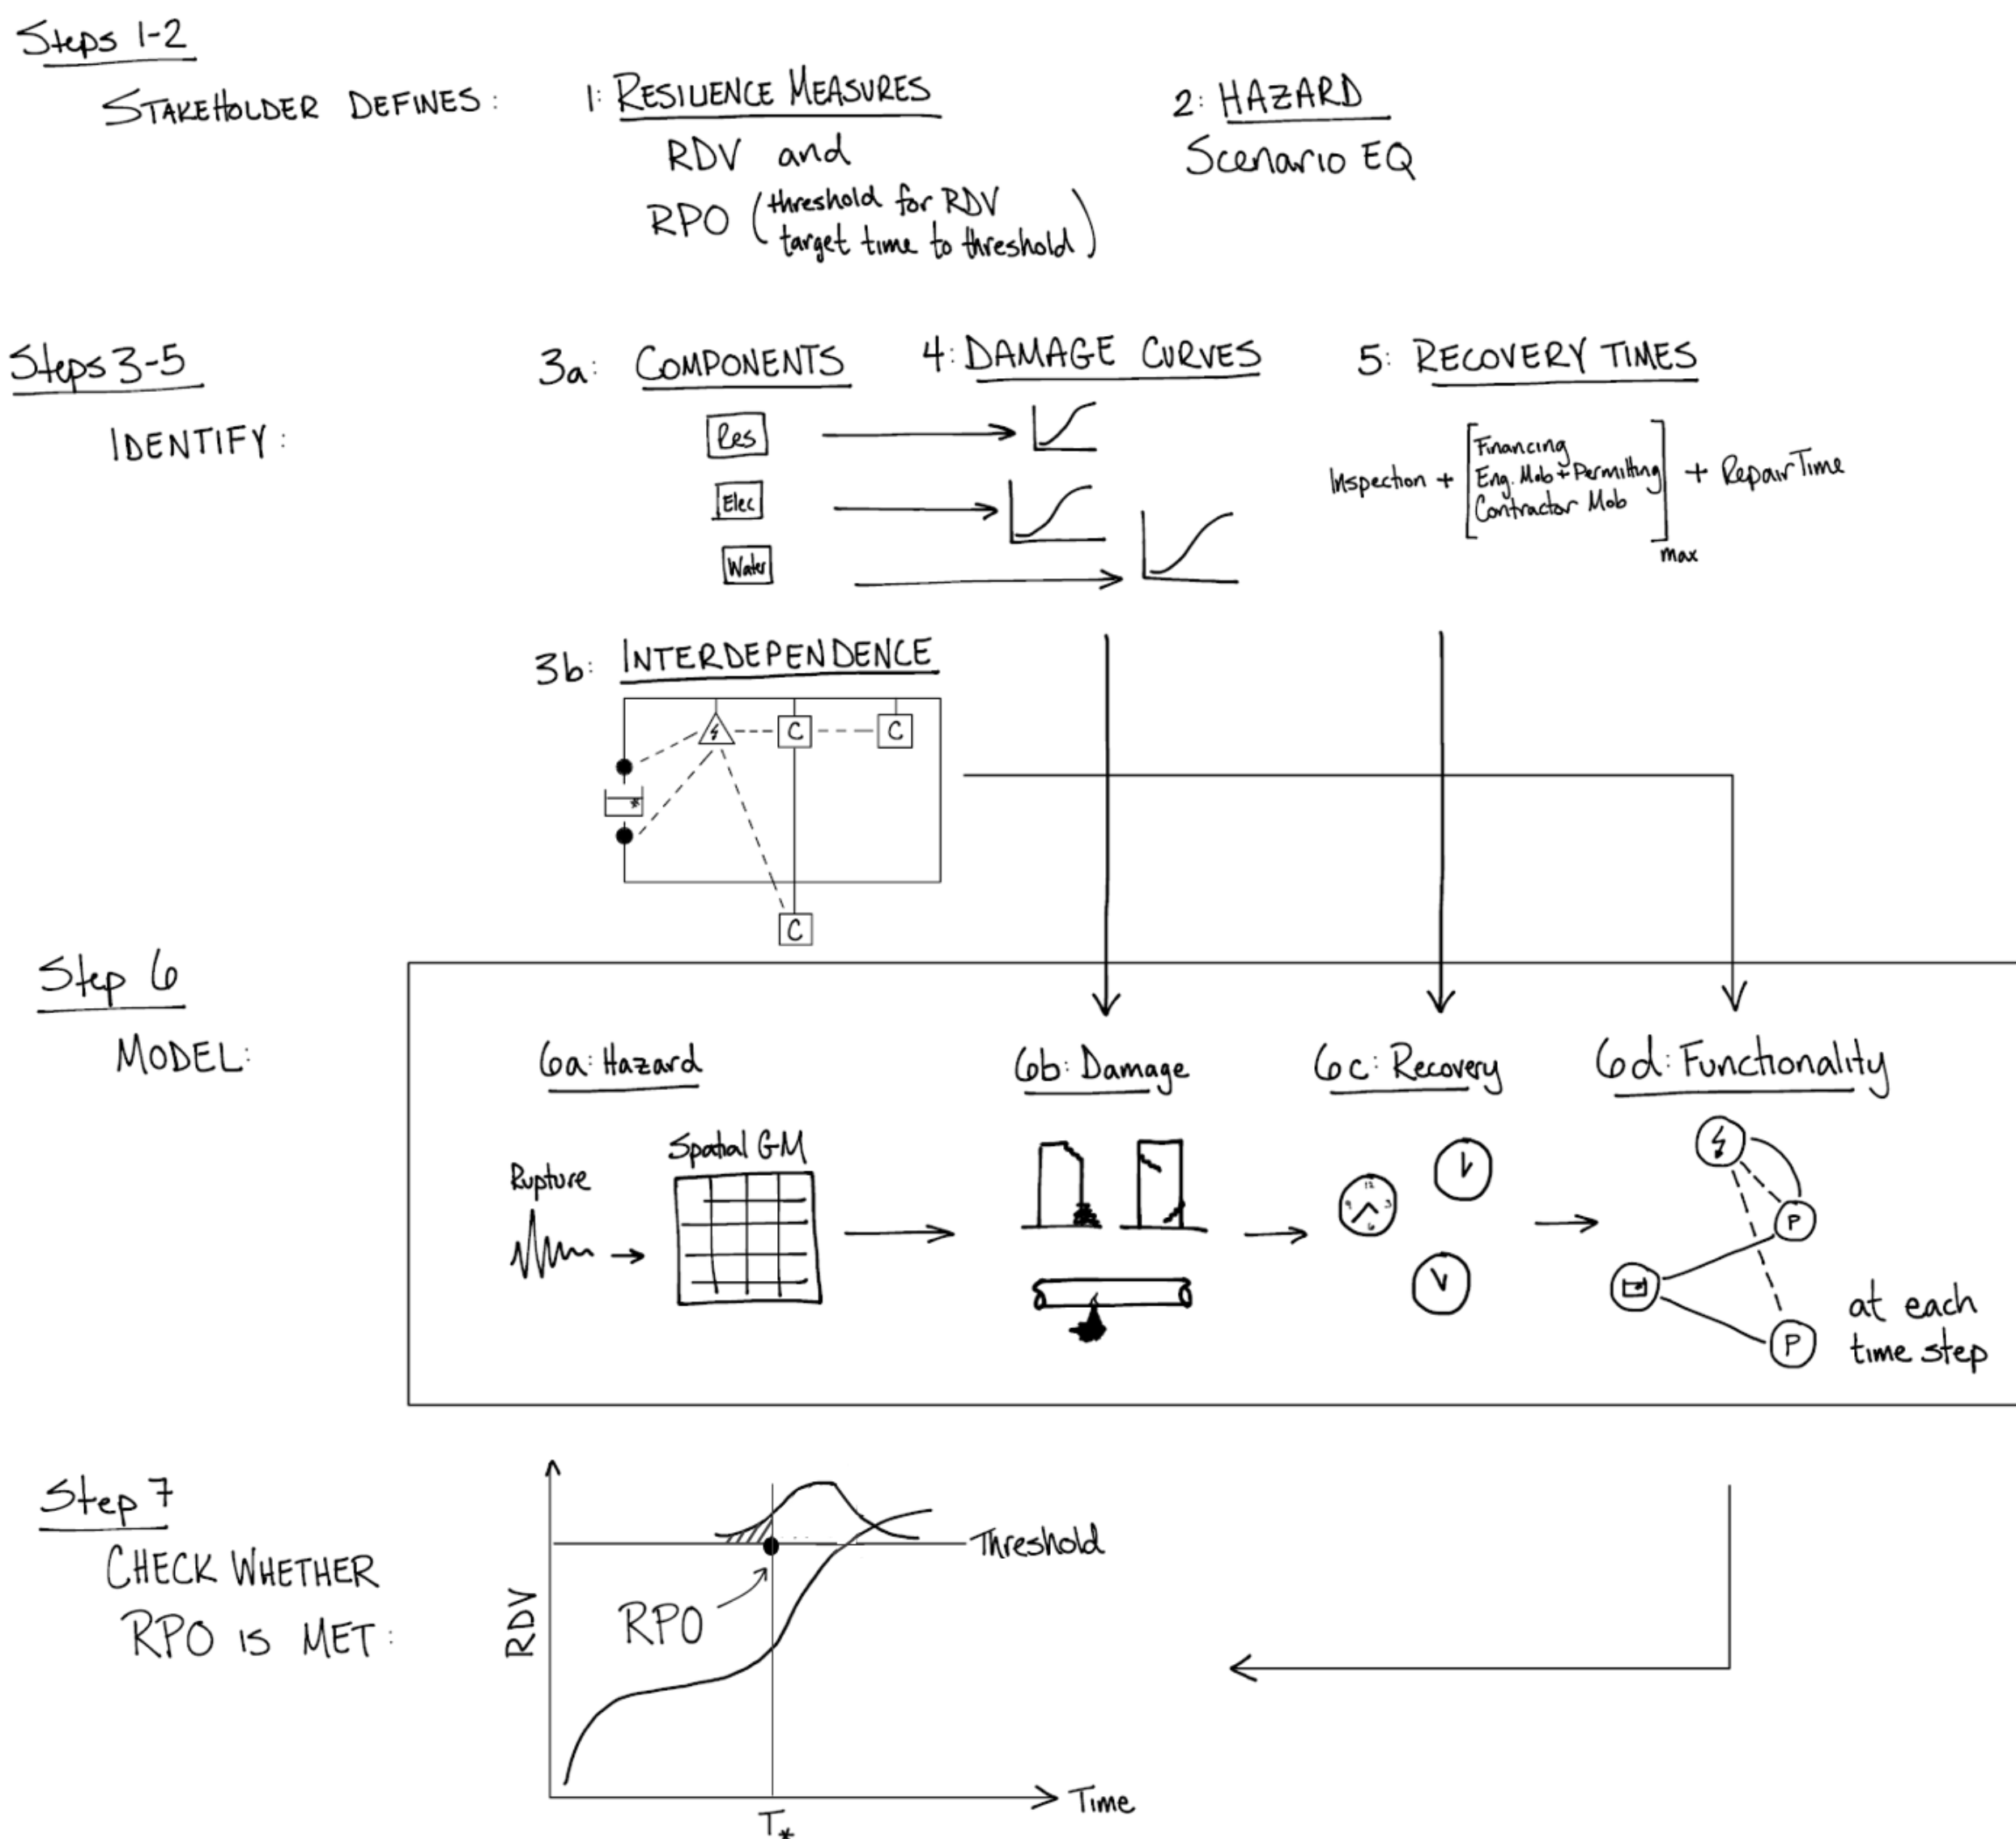 Steps 1-2
STAKEHOLDER DEFINES:
1: RESILIENCE MEASURES
RDV and
RPO (threshold for RDV
target time to threshold)
2: HAZARD
Scenario EQ
Steps 3-5
IDENTIFY:
3a: COMPONENTS
Res
Elec
Water
4: DAMAGE CURVES
5: RECOVERY TIMES
Inspection + [Financing
Eng. Mob + Permitting
Contractor Mob] max + Repair Time
3b: INTERDEPENDENCE
C
C
C
Step 6
MODEL:
6a: Hazard
Rupture
Spatial GM
6b: Damage
6c: Recovery
12
9
3
6
6d: Functionality
P
P
at each
time step
Step 7
CHECK WHETHER
RPO IS MET:
RDV
Threshold
RPO
Time
T*